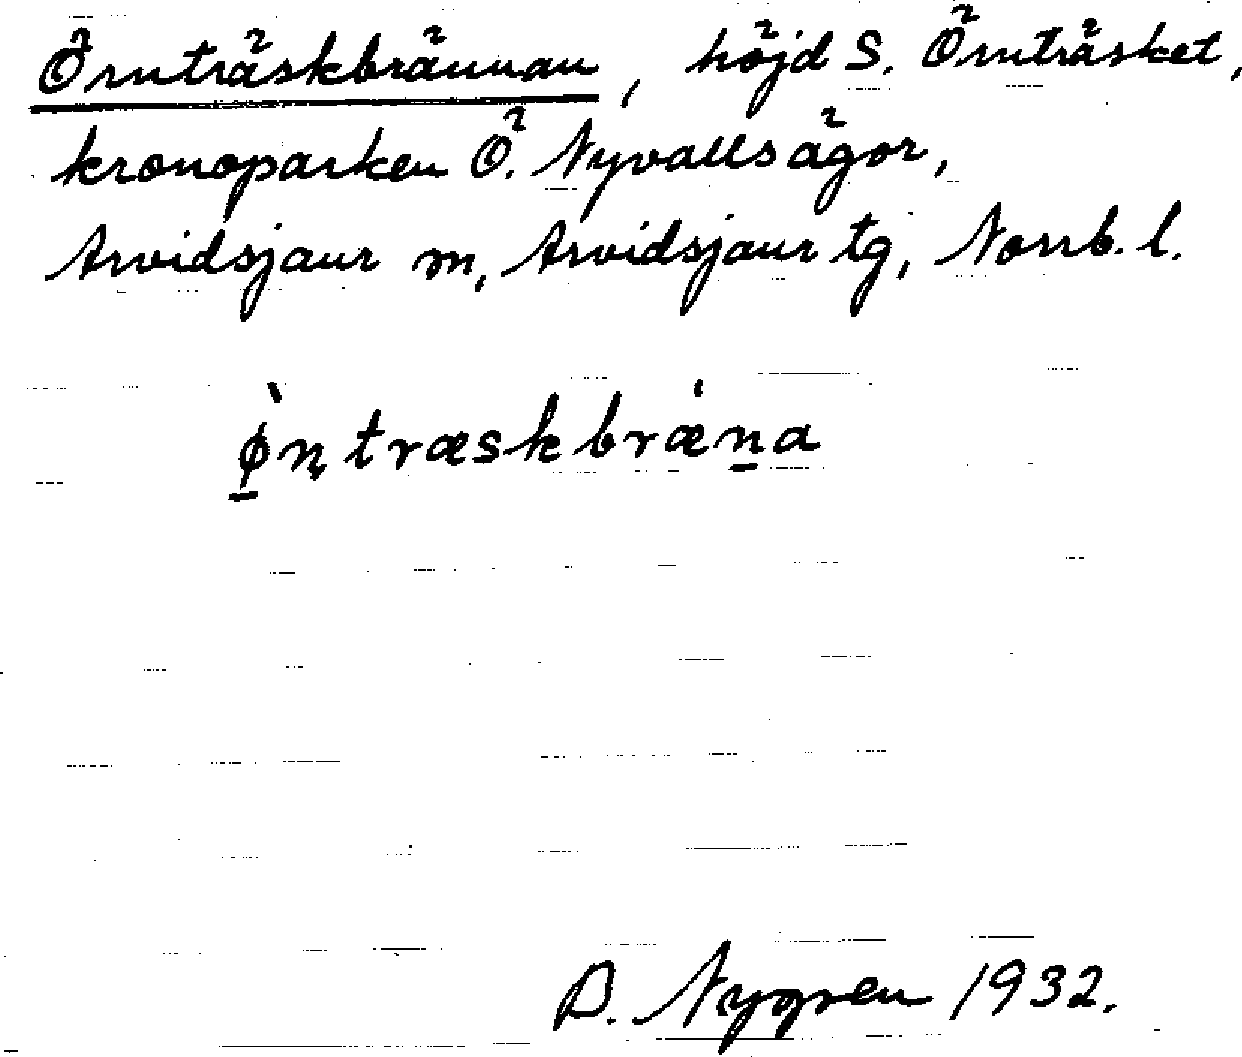 Örnträskbrännan, höjd S. Örnträsket,
kronoparken Ö. Nyvallsägor,
Arvidsjaur m, Arvidsjaur tg, Norrb. l.
ø̲̀ɳtræskbrǽn̲a
D. Nygren 1932.